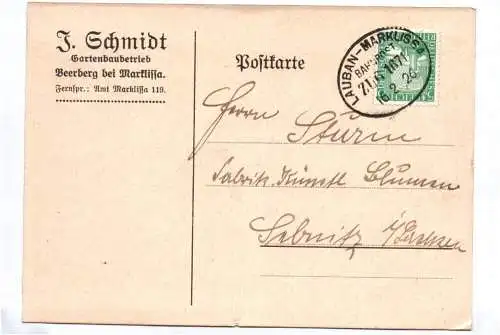 J. Schmidt
Gartenbaubetrieb
Beerberg bei Marklissa.
Fernspr.: Amt Marklissa 119.
Postkarte
LAUBAN-MARKLISSA
BAHNPOST
ZUG 1871
16.2.26
Sturm
Fabrik Künstl Blumen
Sebnitz i/Sachsen